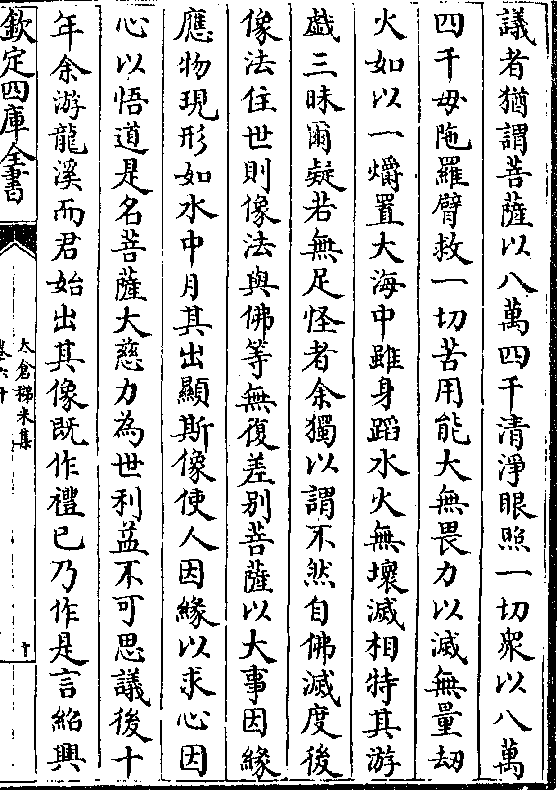 議者猶謂菩薩以八萬四千清淨眼照一切衆以八萬
四千毋陁羅臂救一切苦用能大無畏力以滅無量劫
火如以一爝置大海中雖身蹈水火無壞滅相特其游
戯三昧爾疑若無足怪者余獨以謂不然自佛滅度後
像法住世則像法與佛等無復差别菩薩以大事因緣
應物現形如水中月其出顯斯像使人因緣以求心因
心以悟道是名菩薩大慈力為世利益不可思議後十
年余游龍溪而君始出其像既作禮已乃作是言紹興
欽定四庫全書
太倉稊米集
卷六十
十